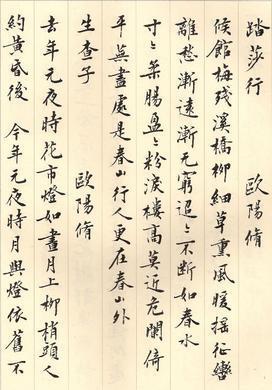 踏莎行 歐陽脩
候館梅殘溪橋柳細草熏風暖搖征轡
離愁漸遠漸无窮迢〻不斷如春水
寸〻柔腸盈〻粉淚樓高莫近危闌倚
平蕪盡處是春山行人更在春山外
生查子 歐陽脩
去年元夜時花市燈如晝月上柳梢頭人
約黃昏後 今年元夜時月與燈依舊不